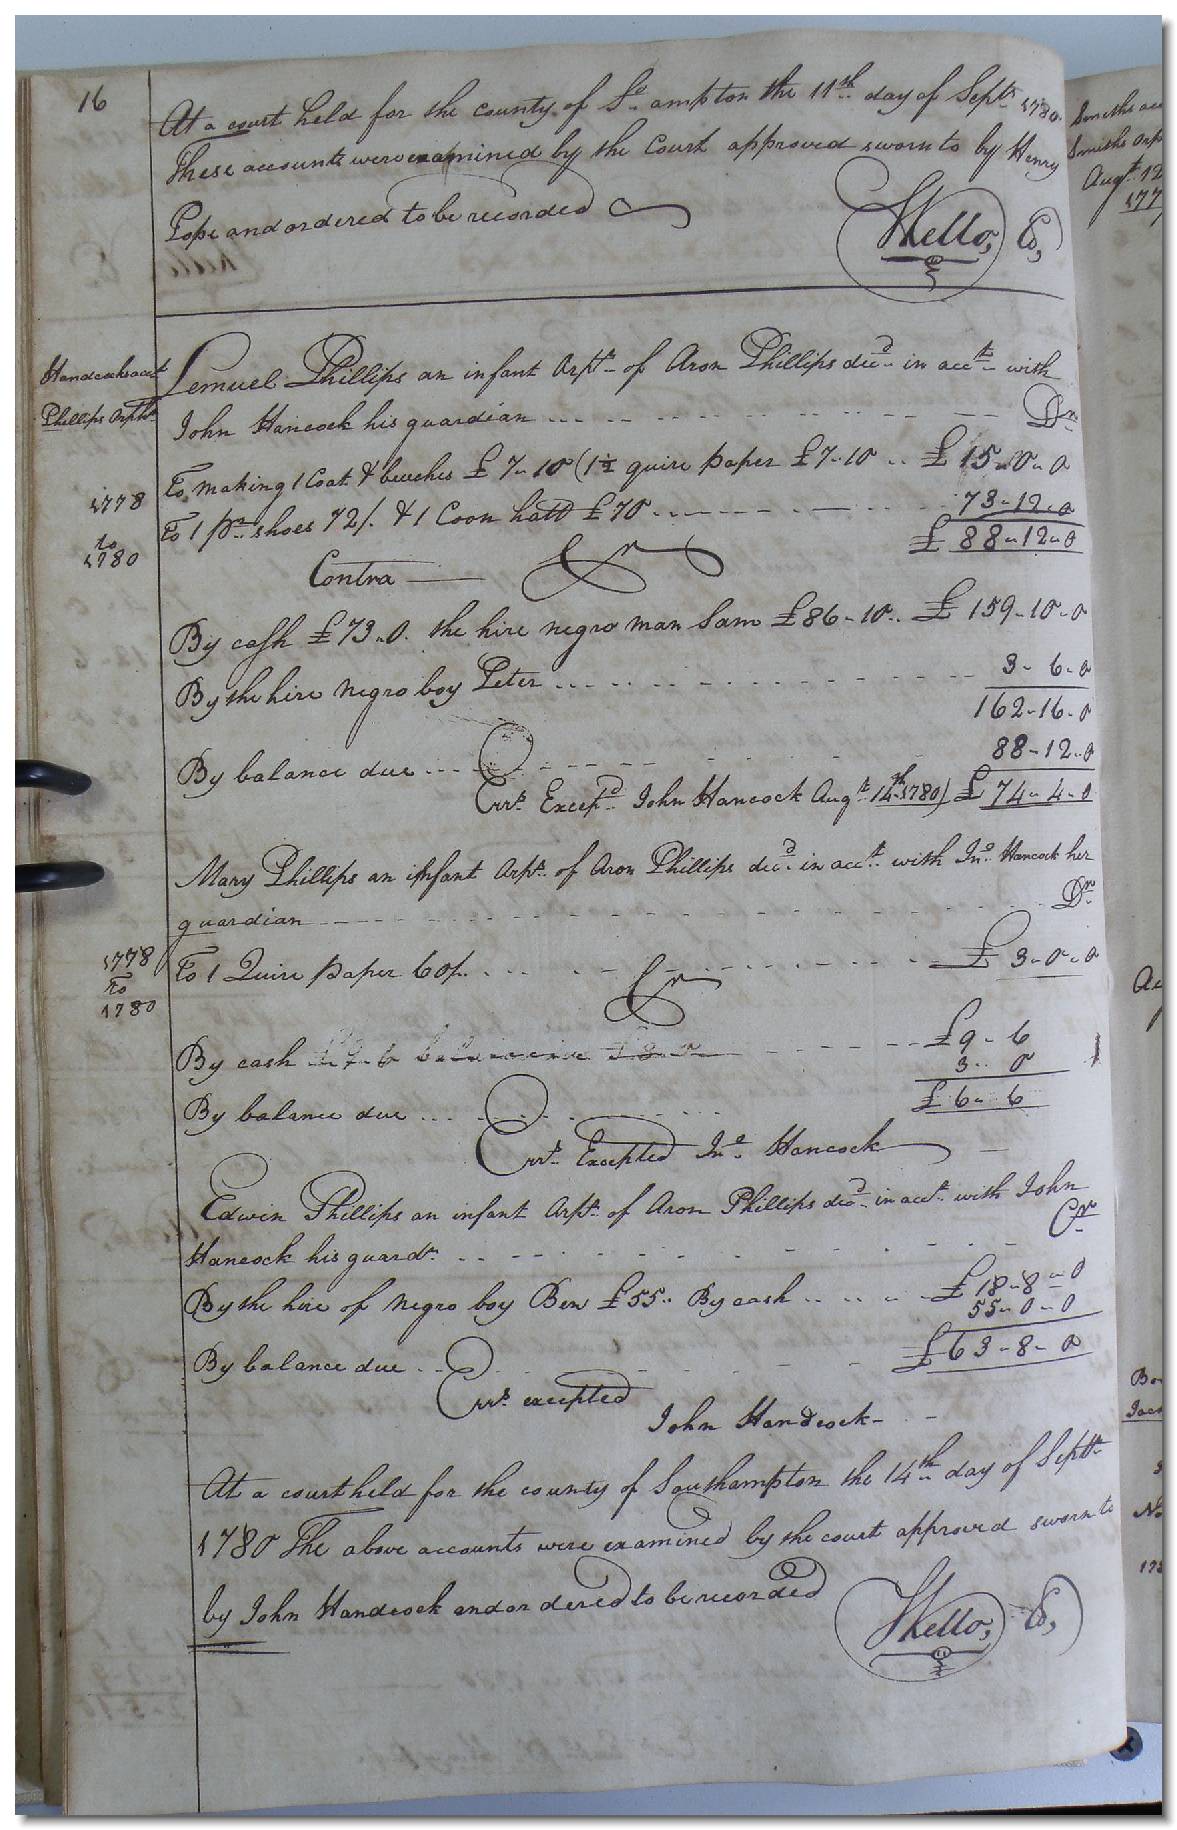 16
At a court held for the county of So ampton the 11th day of Septr 1780.
These accounts were examined by the Court approved sworn to by Henry
Pope and ordered to be recorded
SKello, C,
Handcocks acct
Phillips Orpts
Lemuel Phillips an infant Orpt of Aron Phillips decd in acct with
John Hancock his guardian ... Dr
1778
to
1780
To making 1 Coat & breeches £7-10 (1½ quire paper £7-10 .. £15-0-0
To 1 pr shoes 72/. & 1 Coon hatt £70 ... 73-12-0
£88-12-0
Contra Cr
By cash £73-0. the hire negro man Sam £86-10.. £159-10-0
By the hire negro boy Peter ... 3-6-0
162-16-0
88-12-0
By balance due ...
Errs Excepd John Hancock Augt 14th 1780) £74-4-0
Mary Phillips an infant Orpt of Aron Phillips decd in acct with Jno Hancock her
guardian Dr
1778
To
1780
To 1 Quire paper 60/. ... £3-0-0
Cr
By cash £9-6
3-0
By balance due ... £6-6
Errs Excepted Jno Hancock
Edwin Phillips an infant Orpt of Aron Phillips decd in acct with John
Hancock his guardn Cr
By the hire of negro boy Ben £55.. By cash .. £18-8-0
55-0-0
By balance due .. £63-8-0
Errs excepted
John Handcock
At a court held for the county of Southampton the 14th day of Septr
1780 The above accounts were examined by the court approved sworn to
by John Handcock and ordered to be recorded
SKello, C,
Smiths acc
Smiths Orp
Augt 12
177